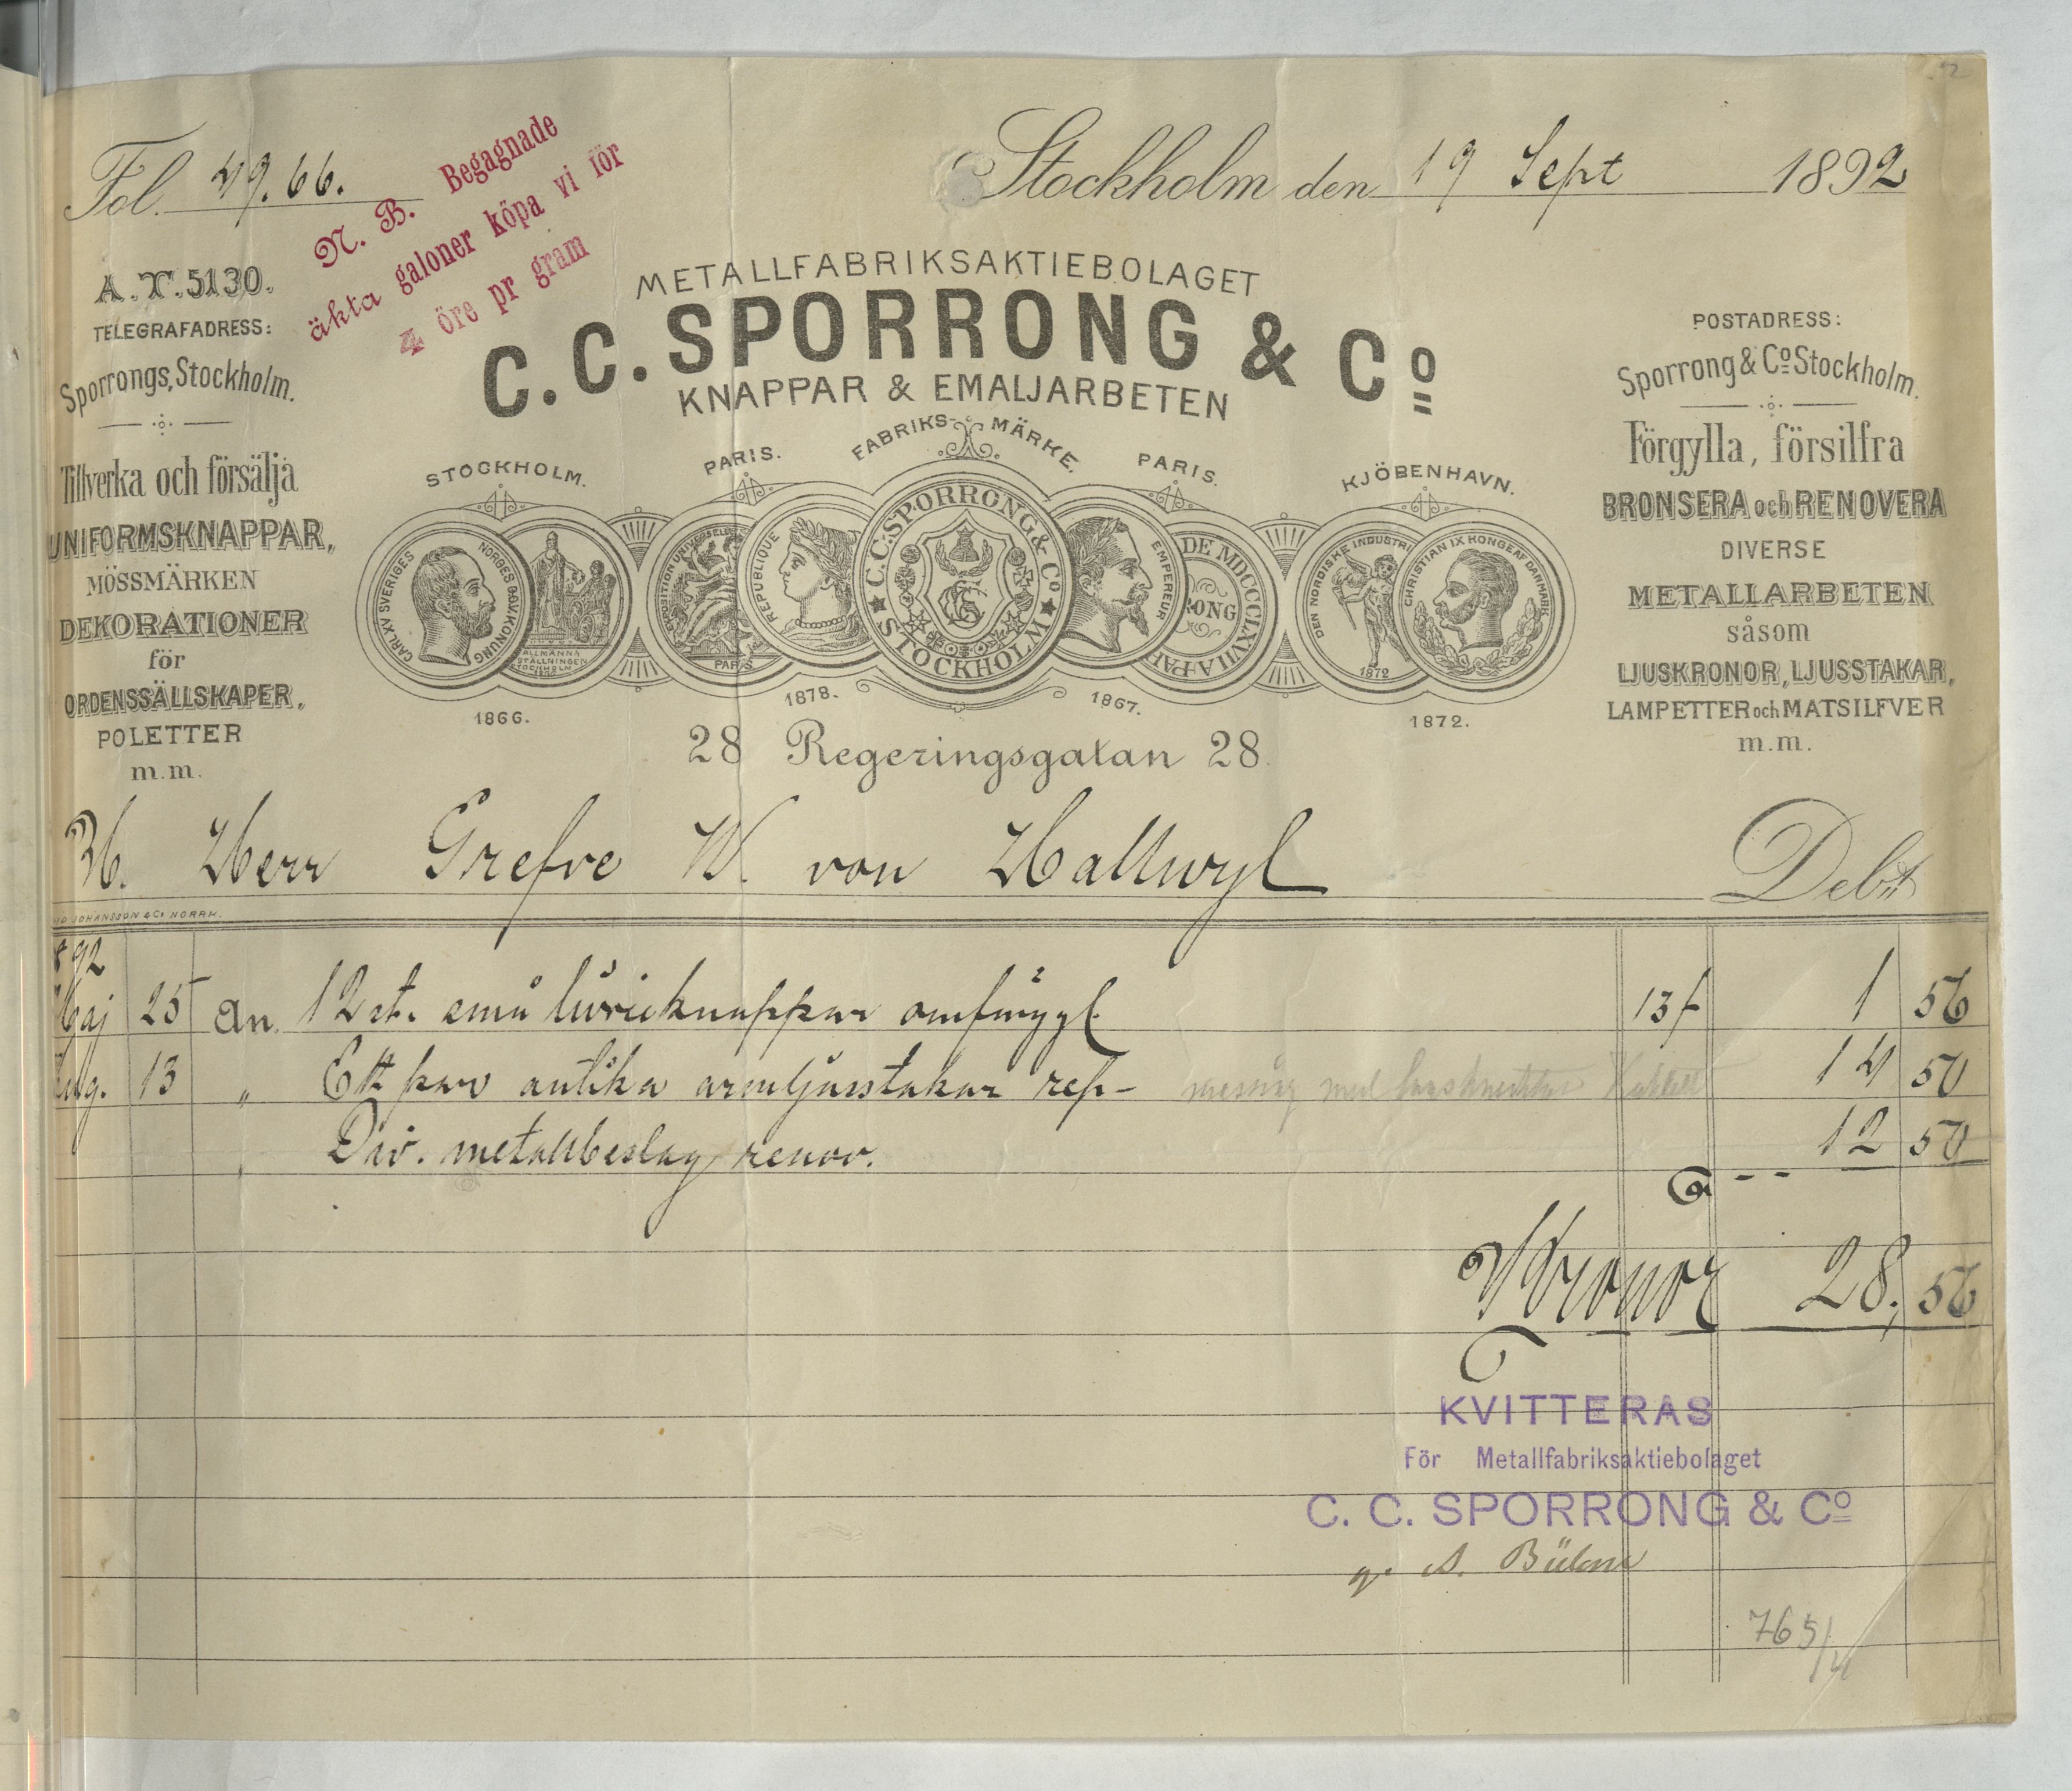 Fol. 49.66.
N. B. Begagnade
äkta galoner köpa vi för
4 öre pr gram
Stockholm den 19 Sept 1892
A.T. 5130.
TELEGRAFADRESS:
Sporrongs, Stockholm.
Tillverka och försälja
UNIFORMSKNAPPAR,
MÖSSMÄRKEN
DEKORATIONER
för
ORDENSSÄLLSKAPER,
POLETTER
m.m.
METALLFABRIKSAKTIEBOLAGET
C. C. SPORRONG & Co
KNAPPAR & EMALJARBETEN
FABRIKS- MÄRKE.
STOCKHOLM. PARIS. PARIS. KJÖBENHAVN.
CARL XV SVERIGES NORGES GÖT. V. KONUNG
ALLMÄNNA
STÄLLNINGEN
STOCKHOLM
EXPOSITION UNIVERSELLE
PARIS
REPUBLIQUE
C. C. SPORRONG & Co
STOCKHOLM
EMPEREUR
DE MDCCCLXVII A PAR
RONG
DEN NORDISKE INDUSTRI
1872
CHRISTIAN IX KONGE AF DANMARK
1866. 1878. 1867. 1872.
28 Regeringsgatan 28.
POSTADRESS:
Sporrong & Co Stockholm.
Förgylla, försilfra
BRONSERA och RENOVERA
DIVERSE
METALLARBETEN
såsom
LJUSKRONOR, LJUSSTAKAR,
LAMPETTER och MATSILFVER
m.m.
36. Herr Grefve W. von Hallwyl Debet
JOHANSSON & Co NORRK.
92
Maj 25 An 12 st. små livréknappar omförgyl. 13 f 1 56
Aug. 13 " Ett par antika armljusstakar rep- messing med 14 50
" Div. metallbeslag renov. 12 50
Kronor 28, 56
KVITTERAS
För Metallfabriksaktiebolaget
C. C. SPORRONG & Co
765/